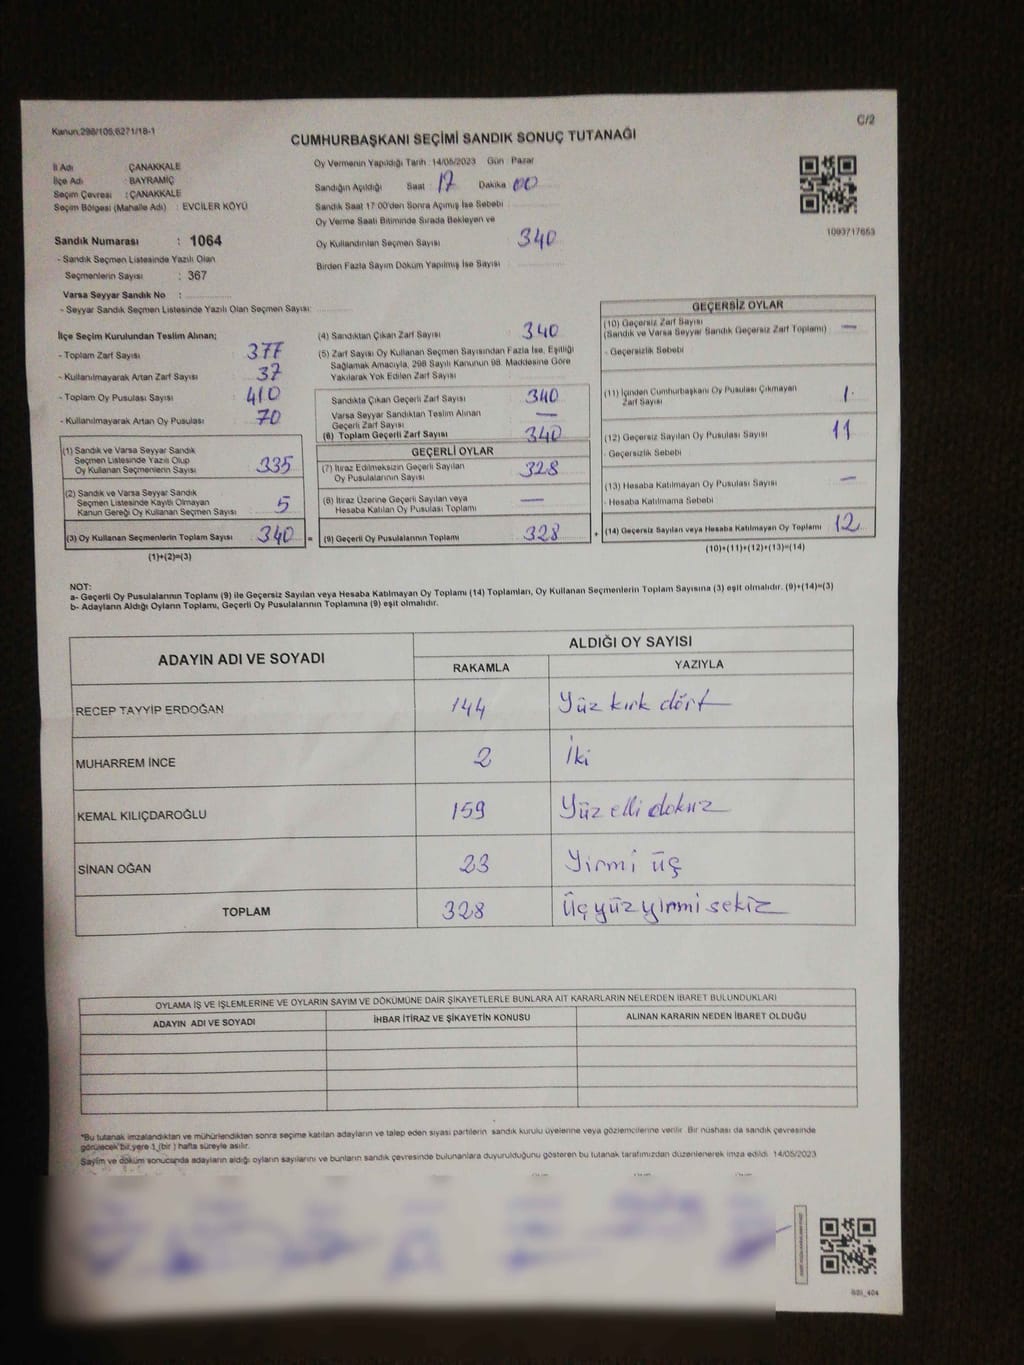 Kanun,298/105,6271/18-1
C/2
CUMHURBAŞKANI SEÇİMİ SANDIK SONUÇ TUTANAĞI
İl Adı ÇANAKKALE
İlçe Adı : BAYRAMİÇ
Seçim Çevresi : ÇANAKKALE
Seçim Bölgesi (Mahalle Adı) : EVCİLER KÖYÜ
Oy Vermenin Yapıldığı Tarih : 14/05/2023 Gün Pazar
Sandığın Açıldığı Saat 17 Dakika 00
Sandık Saat 17:00'den Sonra Açımış İse Sebebi
Oy Verme Saati Bitiminde Sırada Bekleyen ve
Oy Kullandırılan Seçmen Sayısı 340
Birden Fazla Sayım Döküm Yapılmış İse Sayısı
1093717653
Sandık Numarası : 1064
- Sandık Seçmen Listesinde Yazılı Olan
Seçmenlerin Sayısı : 367
Varsa Seyyar Sandık No :
- Seyyar Sandık Seçmen Listesinde Yazılı Olan Seçmen Sayısı:
İlçe Seçim Kurulundan Teslim Alınan;
- Toplam Zarf Sayısı 377
- Kullanılmayarak Artan Zarf Sayısı 37
- Toplam Oy Pusulası Sayısı : 410
- Kullanılmayarak Artan Oy Pusulası 70
(1) Sandık ve Varsa Seyyar Sandık
Seçmen Listesinde Yazılı Olup
Oy Kullanan Seçmenlerin Sayısı 335
(2) Sandık ve Varsa Seyyar Sandık
Seçmen Listesinde Kayıtlı Olmayan
Kanun Gereği Oy Kullanan Seçmen Sayısı 5
(3) Oy Kullanan Seçmenlerin Toplam Sayısı 340 =
(1)+(2)=(3)
(4) Sandıktan Çıkan Zarf Sayısı 340
(5) Zarf Sayısı Oy Kullanan Seçmen Sayısından Fazla İse, Eşitliği
Sağlamak Amacıyla, 298 Sayılı Kanunun 98. Maddesine Göre
Yakılarak Yok Edilen Zarf Sayısı
Sandıkta Çıkan Geçerli Zarf Sayısı 340
Varsa Seyyar Sandıktan Teslim Alınan
Geçerli Zarf Sayısı —
(6) Toplam Geçerli Zarf Sayısı 340
GEÇERLİ OYLAR
(7) İtiraz Edilmeksizin Geçerli Sayılan
Oy Pusulalarının Sayısı 328
(8) İtiraz Üzerine Geçerli Sayılan veya
Hesaba Katılan Oy Pusulası Toplamı —
(9) Geçerli Oy Pusulalarının Toplamı 328 +
GEÇERSİZ OYLAR
(10) Geçersiz Zarf Sayısı
(Sandık ve Varsa Seyyar Sandık Geçersiz Zarf Toplamı) —
- Geçersizlik Sebebi
(11) İçinden Cumhurbaşkanı Oy Pusulası Çıkmayan
Zarf Sayısı 1
(12) Geçersiz Sayılan Oy Pusulası Sayısı 11
- Geçersizlik Sebebi
(13) Hesaba Katılmayan Oy Pusulası Sayısı —
- Hesaba Katılmama Sebebi
(14) Geçersiz Sayılan veya Hesaba Katılmayan Oy Toplamı 12
(10)+(11)+(12)+(13)=(14)
NOT:
a- Geçerli Oy Pusulalarının Toplamı (9) ile Geçersiz Sayılan veya Hesaba Katılmayan Oy Toplamı (14) Toplamları, Oy Kullanan Seçmenlerin Toplam Sayısına (3) eşit olmalıdır. (9)+(14)=(3)
b- Adayların Aldığı Oyların Toplamı, Geçerli Oy Pusulalarının Toplamına (9) eşit olmalıdır.
ADAYIN ADI VE SOYADI ALDIĞI OY SAYISI
RAKAMLA YAZIYLA
RECEP TAYYİP ERDOĞAN 144 Yüz kırk dört
MUHARREM İNCE 2 İki
KEMAL KILIÇDAROĞLU 159 Yüz elli dokuz
SİNAN OĞAN 23 Yirmi üç
TOPLAM 328 Üçyüzyirmisekiz
OYLAMA İŞ VE İŞLEMLERİNE VE OYLARIN SAYIM VE DÖKÜMÜNE DAİR ŞİKAYETLERLE BUNLARA AİT KARARLARIN NELERDEN İBARET BULUNDUKLARI
ADAYIN ADI VE SOYADI İHBAR İTİRAZ VE ŞİKAYETİN KONUSU ALINAN KARARIN NEDEN İBARET OLDUĞU
*Bu tutanak imzalandıktan ve mühürlendikten sonra seçime katılan adayların ve talep eden siyasi partilerin sandık kurulu üyelerine veya gözlemcilerine verilir. Bir nüshası da sandık çevresinde
görülecek bir yere 1 (bir) hafta süreyle asılır.
Sayım ve döküm sonucunda adayların aldığı oyların sayılarını ve bunların sandık çevresinde bulunanlara duyurulduğunu gösteren bu tutanak tarafımızdan düzenlenerek imza edildi. 14/05/2023